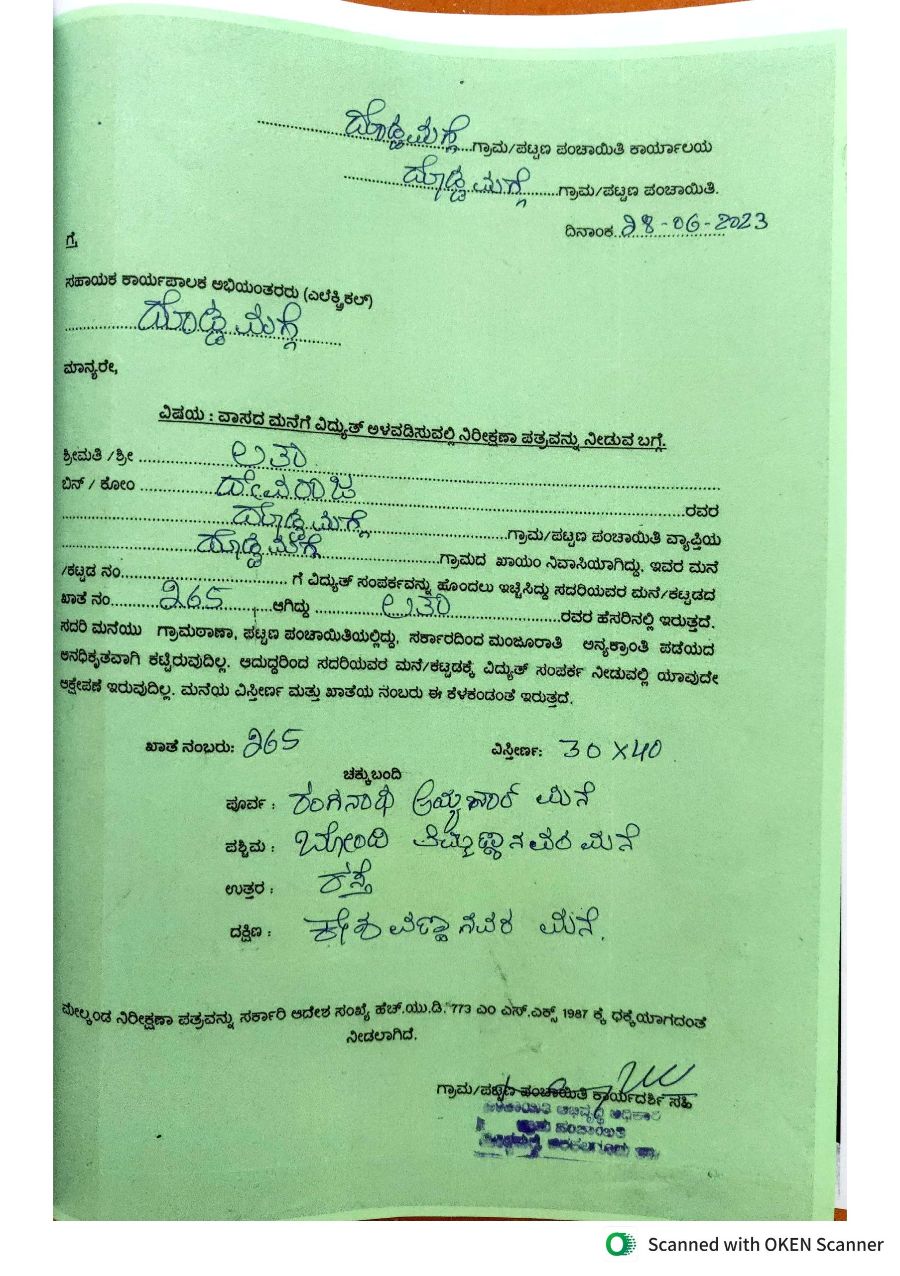 ದೊಡ್ಡಮಗ್ಗೆ ಗ್ರಾಮ/ಪಟ್ಟಣ ಪಂಚಾಯಿತಿ ಕಾರ್ಯಾಲಯ
ದೊಡ್ಡಮಗ್ಗೆ ಗ್ರಾಮ/ಪಟ್ಟಣ ಪಂಚಾಯಿತಿ.
ದಿನಾಂಕ 28-06-2023
ಗೆ,
ಸಹಾಯಕ ಕಾರ್ಯಪಾಲಕ ಅಭಿಯಂತರರು (ಎಲೆಕ್ಟ್ರಿಕಲ್)
ದೊಡ್ಡಮಗ್ಗೆ
ಮಾನ್ಯರೇ,
ವಿಷಯ : ವಾಸದ ಮನೆಗೆ ವಿದ್ಯುತ್ ಅಳವಡಿಸುವಲ್ಲಿ ನಿರೀಕ್ಷಣಾ ಪತ್ರವನ್ನು ನೀಡುವ ಬಗ್ಗೆ.
ಶ್ರೀಮತಿ /ಶ್ರೀ ಲತಾ
ಬಿನ್ / ಕೋಂ ದೇವರಾಜ ರವರ
ದೊಡ್ಡಮಗ್ಗೆ ಗ್ರಾಮ/ಪಟ್ಟಣ ಪಂಚಾಯಿತಿ ವ್ಯಾಪ್ತಿಯ
ದೊಡ್ಡಮಗ್ಗೆ ಗ್ರಾಮದ ಖಾಯಂ ನಿವಾಸಿಯಾಗಿದ್ದು, ಇವರ ಮನೆ
/ಕಟ್ಟಡ ನಂ. ಗೆ ವಿದ್ಯುತ್ ಸಂಪರ್ಕವನ್ನು ಹೊಂದಲು ಇಚ್ಛಿಸಿದ್ದು ಸದರಿಯವರ ಮನೆ/ಕಟ್ಟಡದ
ಖಾತೆ ನಂ. 265 ಆಗಿದ್ದು ಲತಾ ರವರ ಹೆಸರಿನಲ್ಲಿ ಇರುತ್ತದೆ.
ಸದರಿ ಮನೆಯು ಗ್ರಾಮಠಾಣಾ, ಪಟ್ಟಣ ಪಂಚಾಯಿತಿಯಲ್ಲಿದ್ದು, ಸರ್ಕಾರದಿಂದ ಮಂಜೂರಾತಿ ಅನ್ಯಕ್ರಾಂತಿ ಪಡೆಯದ
ಅನಧಿಕೃತವಾಗಿ ಕಟ್ಟಿರುವುದಿಲ್ಲ. ಆದುದ್ದರಿಂದ ಸದರಿಯವರ ಮನೆ/ಕಟ್ಟಡಕ್ಕೆ ವಿದ್ಯುತ್ ಸಂಪರ್ಕ ನೀಡುವಲ್ಲಿ ಯಾವುದೇ
ಆಕ್ಷೇಪಣೆ ಇರುವುದಿಲ್ಲ. ಮನೆಯ ವಿಸ್ತೀರ್ಣ ಮತ್ತು ಖಾತೆಯ ನಂಬರು ಈ ಕೆಳಕಂಡಂತೆ ಇರುತ್ತದೆ.
ಖಾತೆ ನಂಬರು: 265 ವಿಸ್ತೀರ್ಣ: 30 X 40
ಚಕ್ಕುಬಂದಿ
ಪೂರ್ವ : ರಂಗನಾಥ ಮನೆ
ಪಶ್ಚಿಮ : ಬೋಂಡಿ ತಮ್ಮಣ್ಣನವರ ಮನೆ
ಉತ್ತರ : ರಸ್ತೆ
ದಕ್ಷಿಣ : ಕೇಶವಣ್ಣನವರ ಮನೆ.
ಮೇಲ್ಕಂಡ ನಿರೀಕ್ಷಣಾ ಪತ್ರವನ್ನು ಸರ್ಕಾರಿ ಆದೇಶ ಸಂಖ್ಯೆ ಹೆಚ್.ಯು.ಡಿ. 773 ಎಂ ಎಸ್.ಎಕ್ಸ್ 1987 ಕ್ಕೆ ಧಕ್ಕೆಯಾಗದಂತೆ
ನೀಡಲಾಗಿದೆ.
ಗ್ರಾಮ/ಪಟ್ಟಣ ಪಂಚಾಯಿತಿ ಕಾರ್ಯದರ್ಶಿ ಸಹಿ
ಪಂಚಾಯಿತಿ ಅಭಿವೃದ್ಧಿ ಅಧಿಕಾರಿ
ಗ್ರಾಮ ಪಂಚಾಯಿತಿ
Scanned with OKEN Scanner